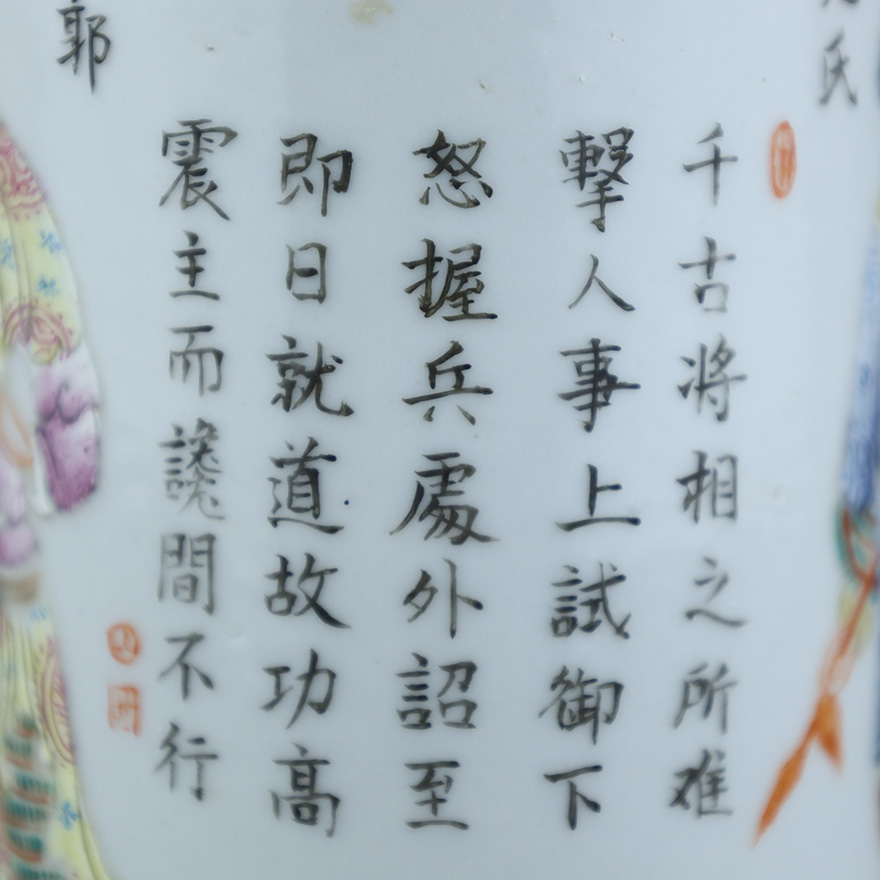 氏
千古将相之所难
擊人事上試御下
怒握兵處外詔至
即日就道故功高
震主而讒間不行
郭